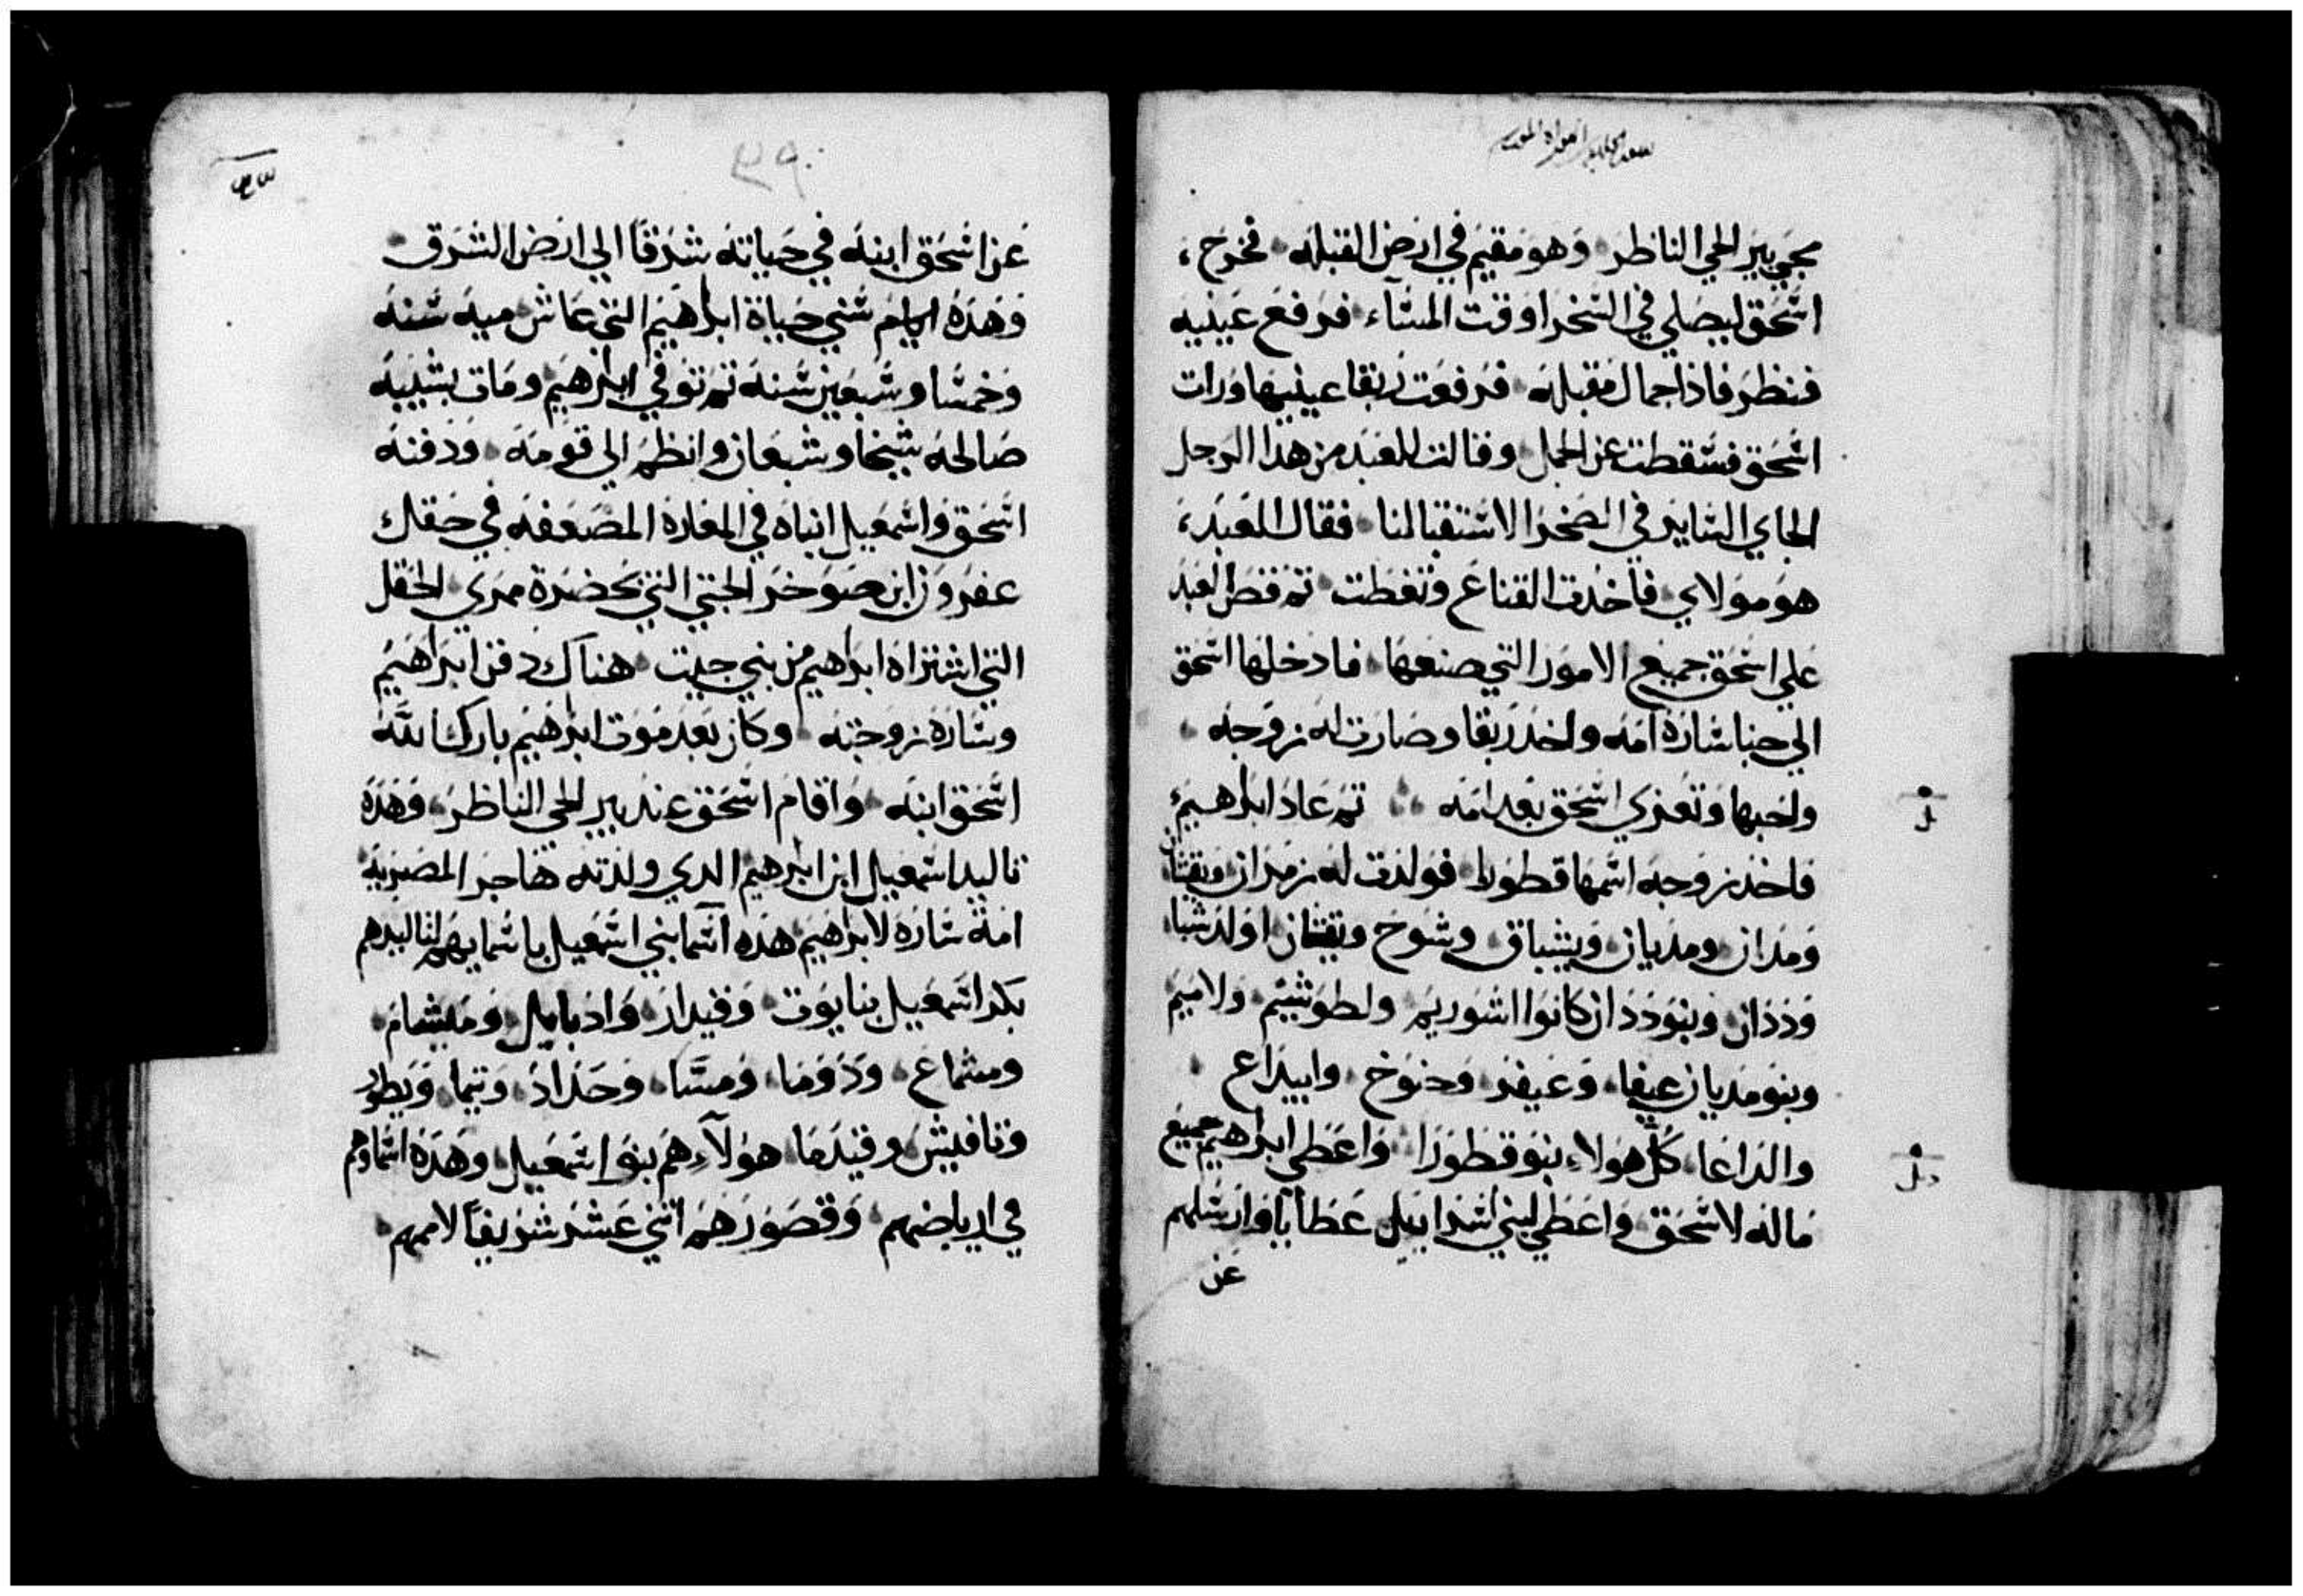 مجي بير الحي الناظر وهو مقيم في ارض القبله فخرج
اسحق ليصلي في السحرا وقت المساء فرفع عينيه
فنظر فاذا جمال مقبله فرفعت ربقا عينيها ورات
اسحق فسقطت عن الجمل وقالت للعبد من هدا الرجل
الجاي الساير في الصحرا لاستقبالنا فقال العبد
هو مولاي فاخدت القناع وتغطت تم قص العبد
علي اسحق جميع الامور التي صنعها فادخلها اسحق
الي خبا ساره امه واخد ربقا وصارت له زوجه
واحبها وتعزي اسحق بعد امه تم عاد ابرهيم
فاخد زوجه اسمها قطورا فولدت له زمران ويقشان
ومدان ومديان ويشباق وشوح ويقشان اولد شبا
وددان وبنو ددان كانوا اشوريم ولطوشيم ولاميم
وبنو مديان عيفا وعيفر وحنوخ وابيداع
والداعا كل هولاء بنو قطورا واعطي ابراهيم جميع
ماله لاسحق واعطي لبني اسرايل عطايا وارسلهم
عن
٢٩
عن اسحق ابنه في حياته شرقا الي ارض الشرق
وهده ايام سني حياة ابراهيم التي عاش ميه سنه
وخمسا وسبعين سنه تم توفي ابرهيم ومات بشيبه
صالحه شيخا وشبعان وانظم الي قومه ودفنه
اسحق واسمعيل ابناه في المغاره المضعفه في حقل
عفرون ابن صوحر الحتي التي بحضرة ممري الحقل
التي اشتراه ابراهيم من بني حيت هناك دفن ابراهيم
وساره زوجته وكان بعد موت ابرهيم بارك الله
اسحق ابنه واقام اسحق عند بير الحي الناظر وهده
تاليد اسمعيل ابن ابرهيم الدي ولدته هاجر المصريه
امة ساره لابراهيم هده اسما بني اسمعيل باسمايهم لتاليدهم
بكر اسمعيل بنايوت وقيدار وادبايل ومبشام
ومشماع ودوما ومسا وحداد وتيما ويطور
ونافيش وقيدما هولاء هم بنو اسمعيل وهده اسماوهم
في ارباضهم وقصورهم اتني عشر شريفا لاممهم